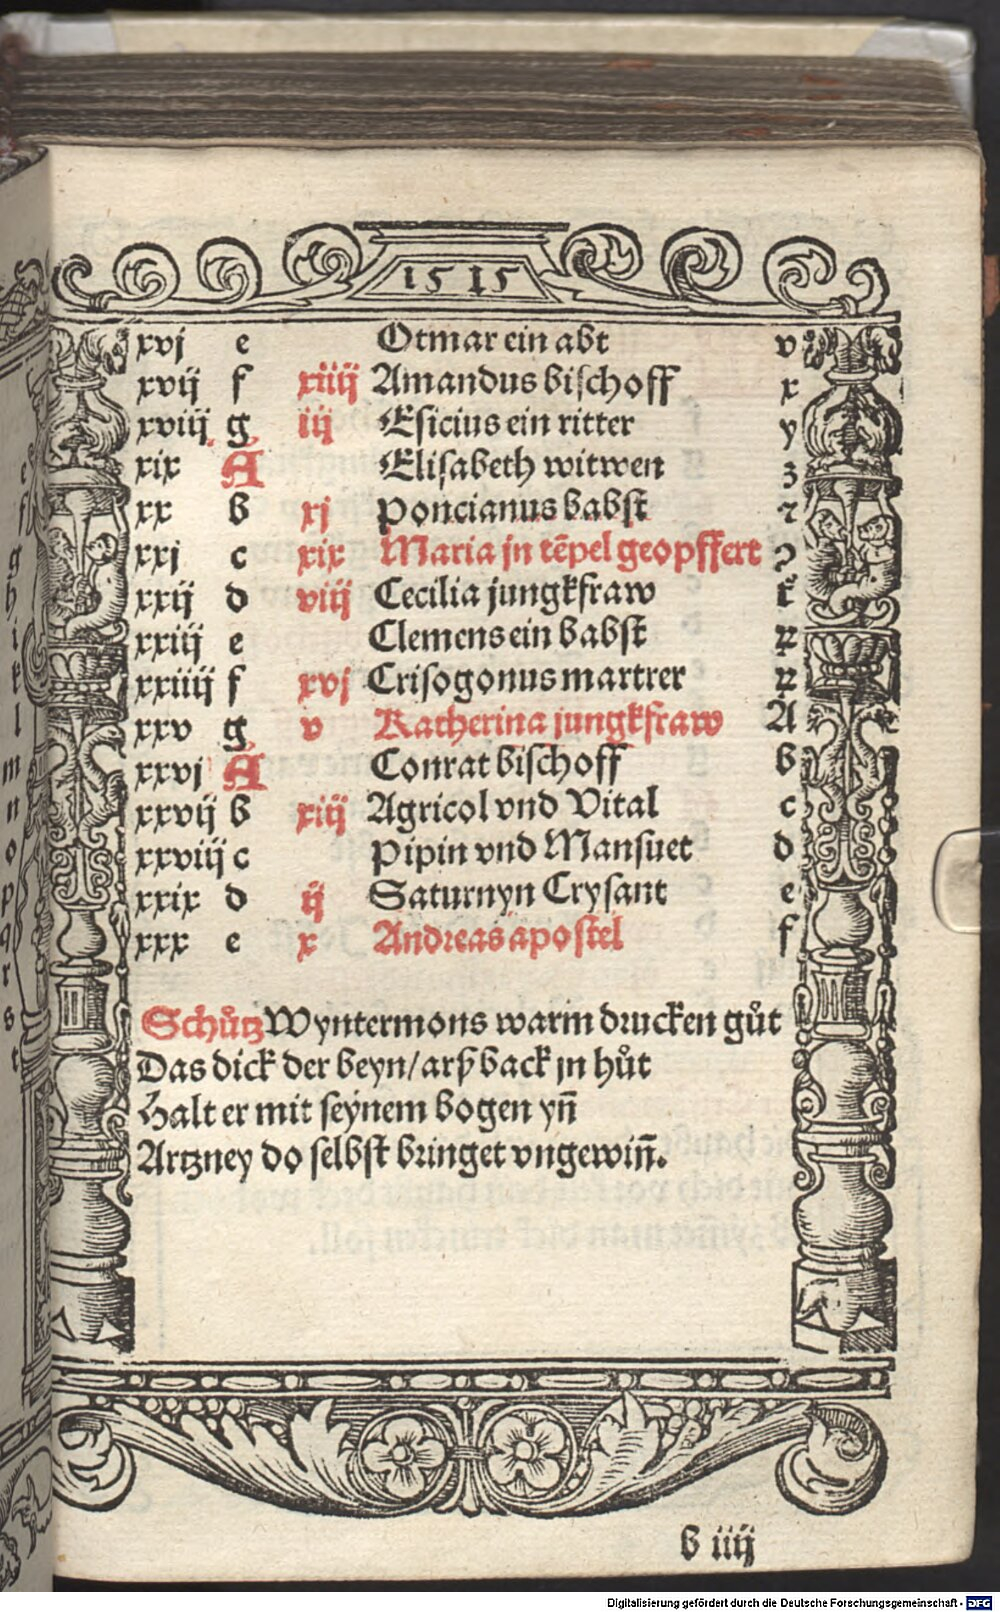 1515
xvj e Otmar ein abt v
xvij f xiiij Amandus bischoff x
xviij g iij Esicius ein ritter y
xix A Elisabeth witwen z
xx b xj Poncianus babst ⁊
xxj c xix Maria jn tēpel geopffert ꝯ
xxij d viij Cecilia jungkfraw
xxiij e Clemens ein babst
xxiiij f xvj Crisogonus martrer
xxv g v Katherina jungkfraw A
xxvj A Conrat bischoff b
xxvij b xiij Agricol vnd Vital c
xxviij c Pipin vnd Mansuet d
xxix d ij Saturnyn Crysant e
xxx e x Andreas apostel f
Schůtz Wyntermons warm drucken gůt
Das dick der beyn/arß back jn hůt
Halt er mit seynem bogen yn̄
Artzney do selbst bringet vngewin̄.
b iiij
e
f
g
h
i
k
l
m
n
o
p
q
r
s
t
Digitalisierung gefördert durch die Deutsche Forschungsgemeinschaft - DFG